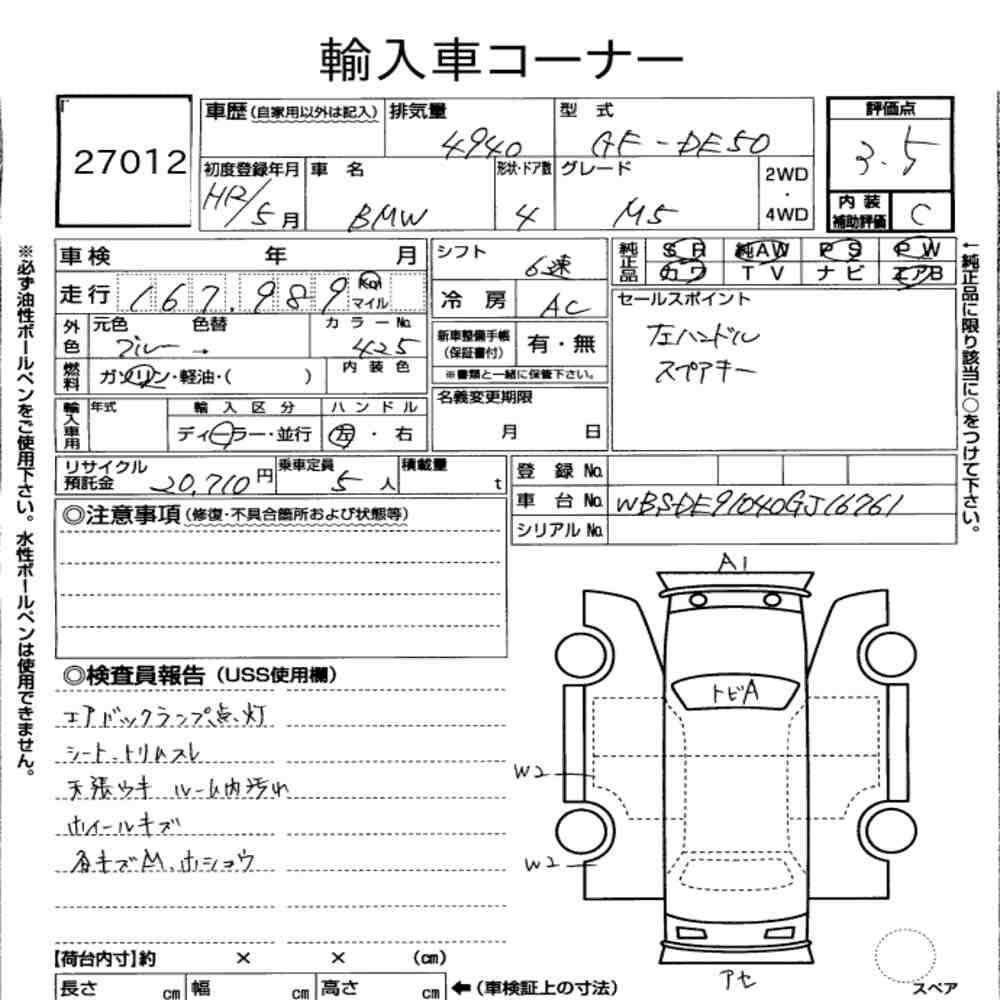 輸入車コーナー
27012
車歴(自家用以外は記入) 排気量 4940 型式 GF-DE50 評価点 3.5
初度登録年月 5月 車名 BMW 形状・ドア数 4 グレード M5 2WD・4WD 内装補助評価 C
車検 年 月 シフト 6速 純正品 SR 純AW PS PW
カワ TV ナビ エアB
走行 167.989 Km マイル 冷房 AC セールスポイント
左ハンドル
スペアキー
外色 元色 ブルー → 色替 カラーNo. 425 新車整備手帳(保証書付) 有・無
※書類と一緒に保管下さい。
燃料 ガソリン・軽油・( ) 内装色
名義変更期限 月 日
輸入車用 年式 輸入区分 ディーラー・並行 ハンドル 左・右
リサイクル預託金 20,710円 乗車定員 5人 積載量 t
登録No.
車台No. WBSDE91040GJ16761
シリアルNo.
◎注意事項(修復・不具合箇所および状態等)
◎検査員報告(USS使用欄)
エアバックランプ点灯
シート、トリムスレ
天張ウキ ルーム内汚れ
ホイールキズ
各キズM、ホショウ
A1
トビA
W2
W2
アセ
スペア
【荷台内寸】約 × × (cm)
長さ cm 幅 cm 高さ cm ←(車検証上の寸法)
※必ず油性ボールペンをご使用下さい。水性ボールペンは使用できません。
←純正品に限り該当に○をつけて下さい。